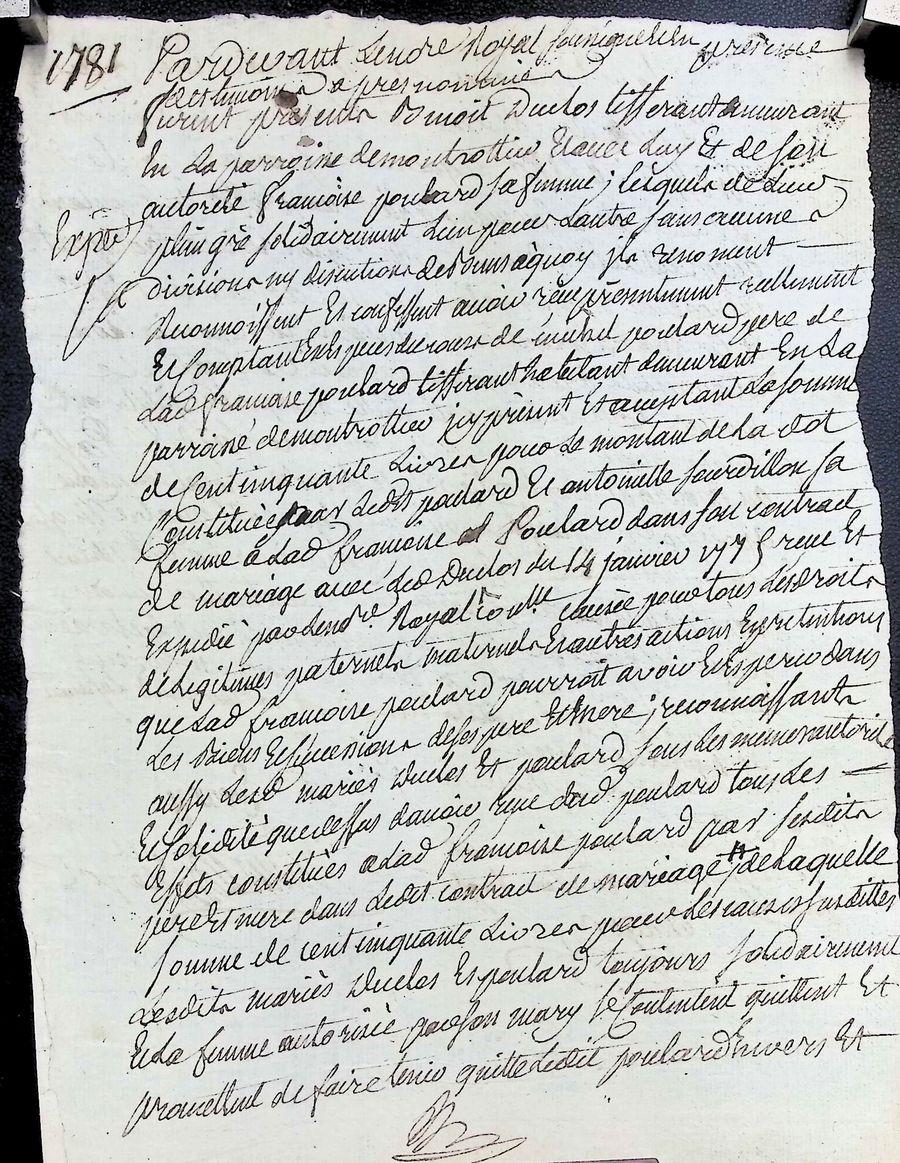 1781
Pardevant Lenore Royal soussigné en presence
des temoins apres nommés
furent presents Benoit Duclos tisserant demeurant
En La parroisse de montrottier Et avec Luy Et de son
autorité françoise poulard sa femme ; lesquels de Leur
Expéé
plein gré solidairement L'un pour L'autre sans aucune
division ny discution de biens a quoy ils renoncent
Reconnoissent Et confessent avoir reçu présentement réellement
Et Comptant En Especes du cours de michel poulard pere de
Lad françoise poulard tisserant habitant demeurant En La
parroisse de montrottier icy présent Et acceptant La somme
de Cent cinquante Livres pour Le montant de La dot
Constituée par Ledit poulard Et antoinette Sourdillon sa
femme a Lad françoise Poulard dans son contract
de mariage avec Led Duclos du 14 janvier 1775 reçu Et
Expedié par Lenore Royal causée pour tous Les droits
de Legitimes paternels maternels Et autres actions Et prétentions
que Lad françoise poulard pourroit avoir Et Esperer dans
Les Biens Et successions de ses pere Et mere ; reconnoissants
aussy Lesd mariés Duclos Et poulard sous Les memes autorité
Et solidité que dessus d'avoir reçu dud poulard tous Les
Effets constitués a Lad françoise poulard par sesdits
pere Et mere dans Ledit contract de mariage ; de Laquelle
somme de cent cinquante Livres pour Les causes susdittes
Lesdits mariés Duclos Et poulard toujours solidairement
Et La femme autorisée par son mary se Contentent quittent Et
promettent de faire tenir quitte Ledit poulard Envers Et